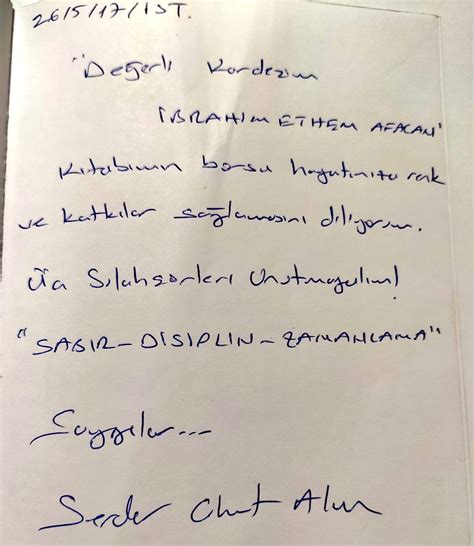 26/5/17/İST.
"Değerli Kardeşim
İBRAHİM ETHEM AFACAN"
Kitabımın borsa hayatınıza renk
ve katkılar sağlamasını diliyorum.
Üç Silahşörleri Unutmayalım!
"SABIR-DİSİPLİN-ZAMANLAMA"
Saygılar...
Serder